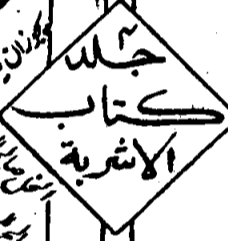 جلد ٢
كتاب
الاشربة